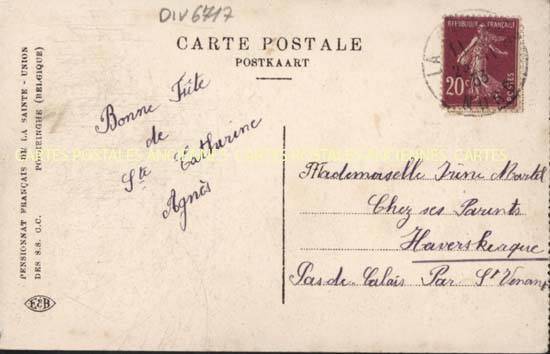 DIV6717
CARTE POSTALE
POSTKAART
RÉPUBLIQUE FRANÇAISE
20c
POSTES
LA
Bonne Fête
de
Ste Catherine
Agnès
Mademoiselle Irène Martel
Chez ses Parents
Haverskerque
Pas-de-Calais Par St Venant
PENSIONNAT FRANÇAIS DE LA SAINTE-UNION
DES S.S. C.C. POPERINGHE (BELGIQUE)
CARTES POSTALES ANCIENNES CARTES POSTALES ANCIENNES CARTES